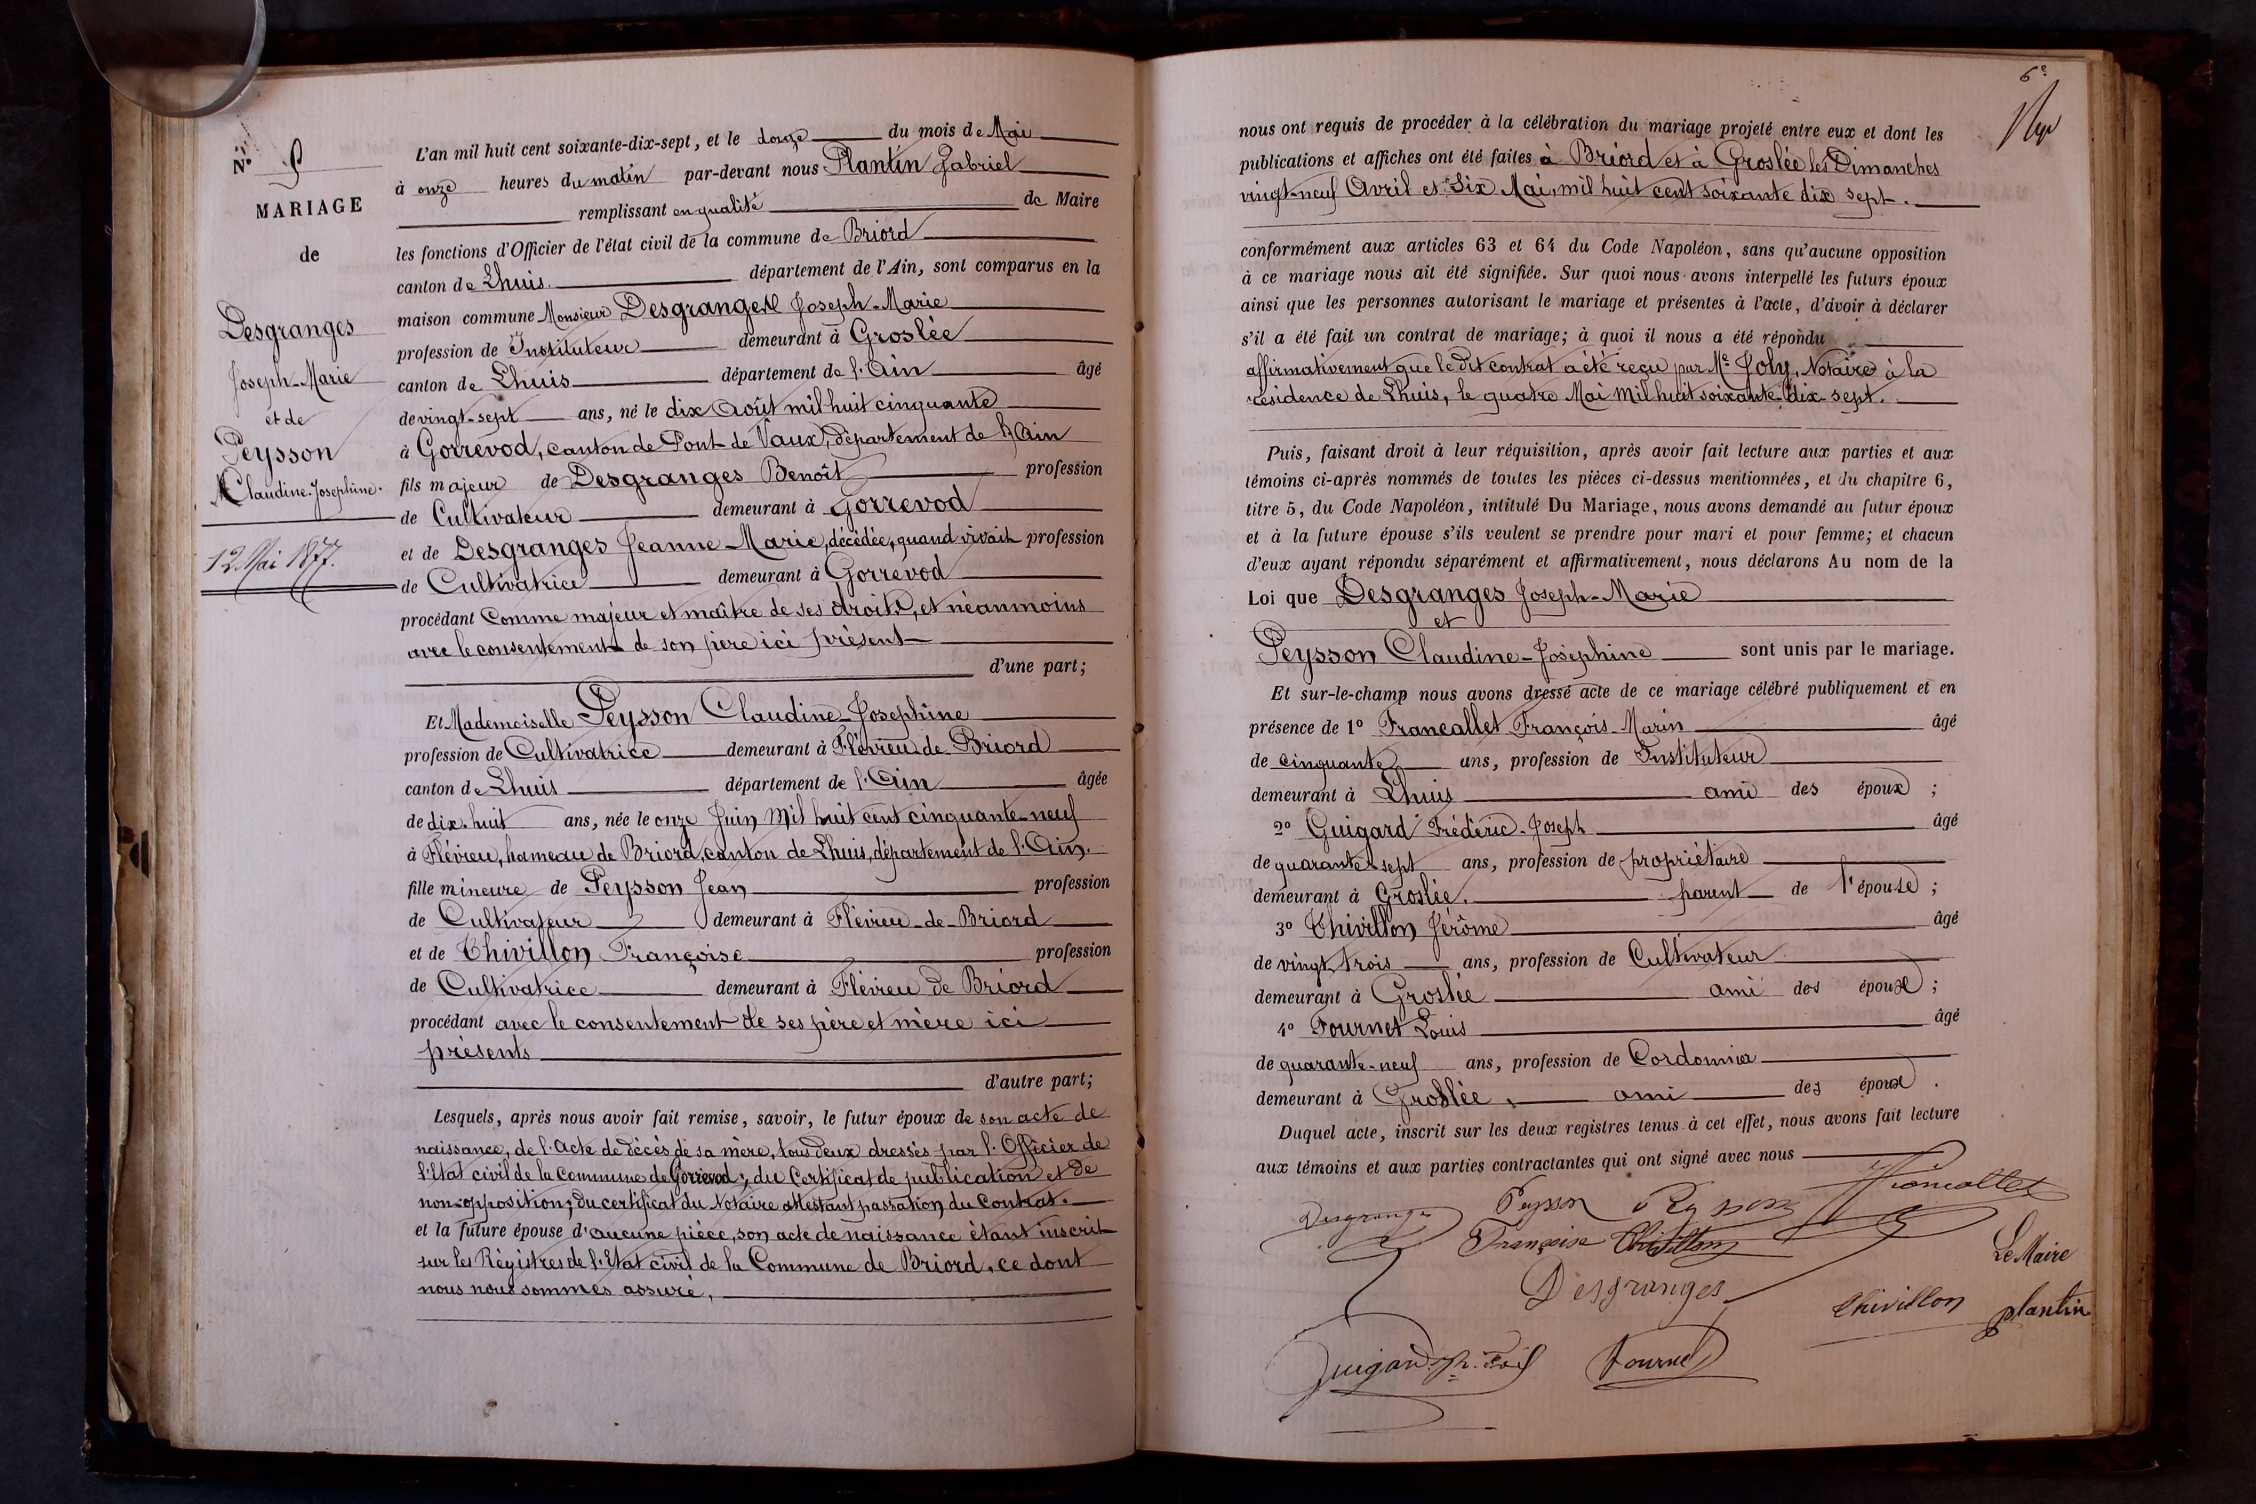 N.° 5
MARIAGE
de
Desgranges
Joseph-Marie
et de
Peysson
Claudine-Josephine.
12 Mai 1877.
L'an mil huit cent soixante-dix-sept, et le douze du mois de Mai
à onze heures du matin par-devant nous Plantin Gabriel
remplissant en qualité de Maire
les fonctions d'Officier de l'état civil de la commune de Briord
canton de Lhuis. département de l'Ain, sont comparus en la
maison commune Monsieur Desgranges Joseph-Marie
profession de Instituteur demeurant à Groslée
canton de Lhuis département de l'Ain âgé
de vingt-sept ans, né le dix Août mil huit cinquante
à Gorrevod, canton de Pont-de Vaux, département de l'Ain
fils majeur de Desgranges Benoît profession
de Cultivateur demeurant à Gorrevod
et de Desgranges Jeanne-Marie, décédée, quand vivait profession
de Cultivatrice demeurant à Gorrevod
procédant Comme majeur et maître de ses droits, et néanmoins
avec le consentement de son père ici présent
d'une part;
Et Mademoiselle Peysson Claudine-Josephine
profession de Cultivatrice demeurant à Flévieu de Briord
canton de Lhuis département de l'Ain âgée
de dix-huit ans, née le onze Juin Mil huit cent cinquante-neuf
à Flévieu, hameau de Briord, canton de Lhuis, département de l'Ain.
fille mineure de Peysson Jean profession
de Cultivateur demeurant à Flévieu-de-Briord
et de Thivillon Françoise profession
de Cultivatrice demeurant à Flévieu de Briord
procédant avec le consentement de ses père et mère ici
présents
d'autre part;
Lesquels, après nous avoir fait remise, savoir, le futur époux de son acte de
naissance, de l'Acte de décès de sa mère, tous deux dressés par l'Officier de
l'Etat civil de la Commune de Gorrevod; du Certificat de publication et de
non-opposition; du certificat du Notaire attestant passation du Contrat.
et la future épouse d'aucune pièce, son acte de naissance étant inscrit
sur les Régistres de l'Etat civil de la Commune de Briord, ce dont
nous nous sommes assuré,
6e
nous ont requis de procéder à la célébration du mariage projeté entre eux et dont les
publications et affiches ont été faites à Briord et à Groslée les Dimanches
vingt-neuf Avril et Six Mai, mil huit cent soixante dix sept.
conformément aux articles 63 et 64 du Code Napoléon, sans qu'aucune opposition
à ce mariage nous ait été signifiée. Sur quoi nous avons interpellé les futurs époux
ainsi que les personnes autorisant le mariage et présentes à l'acte, d'avoir à déclarer
s'il a été fait un contrat de mariage; à quoi il nous a été répondu
affirmativement que le dit contrat a été reçu par Me Joly, Notaire à la
résidence de Lhuis, le quatre Mai Mil huit soixante-dix-sept.
Puis, faisant droit à leur réquisition, après avoir fait lecture aux parties et aux
témoins ci-après nommés de toutes les pièces ci-dessus mentionnées, et du chapitre 6,
titre 5, du Code Napoléon, intitulé Du Mariage, nous avons demandé au futur époux
et à la future épouse s'ils veulent se prendre pour mari et pour femme; et chacun
d'eux ayant répondu séparément et affirmativement, nous déclarons Au nom de la
Loi que Desgranges Joseph-Marie
et
Peysson Claudine-Josephine sont unis par le mariage.
Et sur-le-champ nous avons dressé acte de ce mariage célébré publiquement et en
présence de 1° Francallet François-Marin âgé
de cinquante ans, profession de Instituteur
demeurant à Lhuis ami des époux;
2° Guigard Frédéric-Joseph âgé
de quarante-sept ans, profession de propriétaire
demeurant à Groslée. parent de l'épouse;
3° Thivillon Jérôme âgé
de vingt trois ans, profession de Cultivateur
demeurant à Groslée ami des époux;
4° Fournet Louis âgé
de quarante-neuf ans, profession de Cordonnier
demeurant à Groslée, ami des époux.
Duquel acte, inscrit sur les deux registres tenus à cet effet, nous avons fait lecture
aux témoins et aux parties contractantes qui ont signé avec nous
Desgranges Peysson Peysson Francallet
Françoise Thivillon
Le Maire
Desgranges
Thivillon plantin
Guigard Fournet